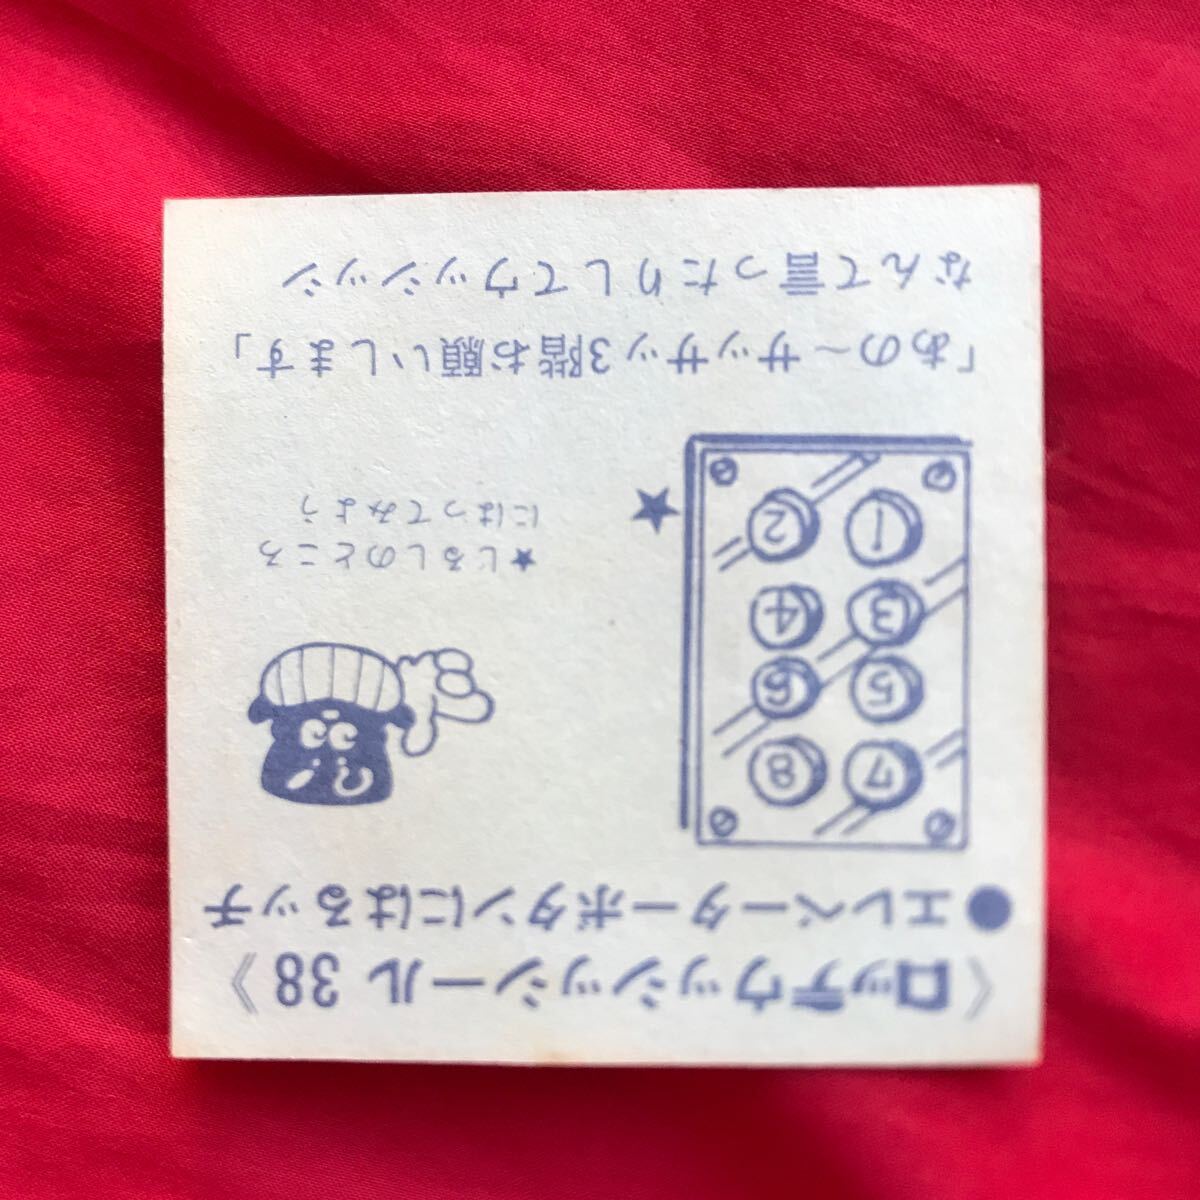 《ロッテウッシッシール 38》
●エレベーターボタンにはるッチ
7 8
5 6
3 4
1 2
★
★じるしのところ
にはってみよう
「あの〜サッサッ3階お願いします」
なんて言ったりしてウッシッシ